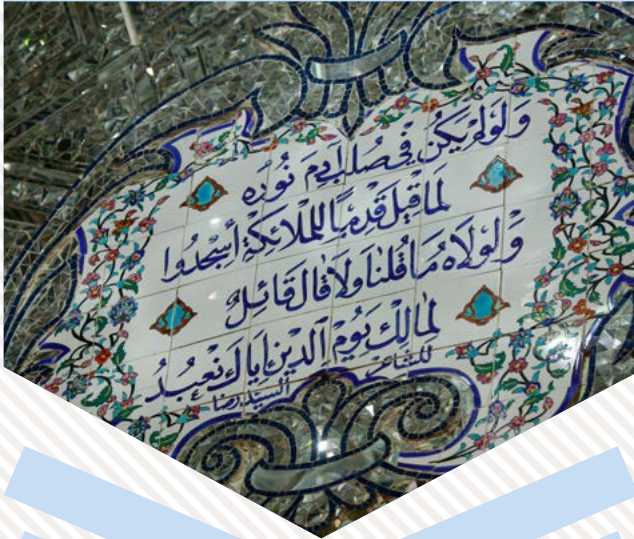 وَلَوْلَمْ يَكُنْ فِي صُلْبِ ادَمَ نُورُه
لَمَا قِيلَ قِدْمًا لِلْمَلَائِكَةِ أَسْجُدُوا
وَلَوْلَاهُ مَا قُلْنَا وَلَا قَالَ قَائِلٌ
لِمَالِكِ يَوْمِ الدِّينِ إِيَّاكَ نَعْبُدُ
للشاعر
السيد رضا